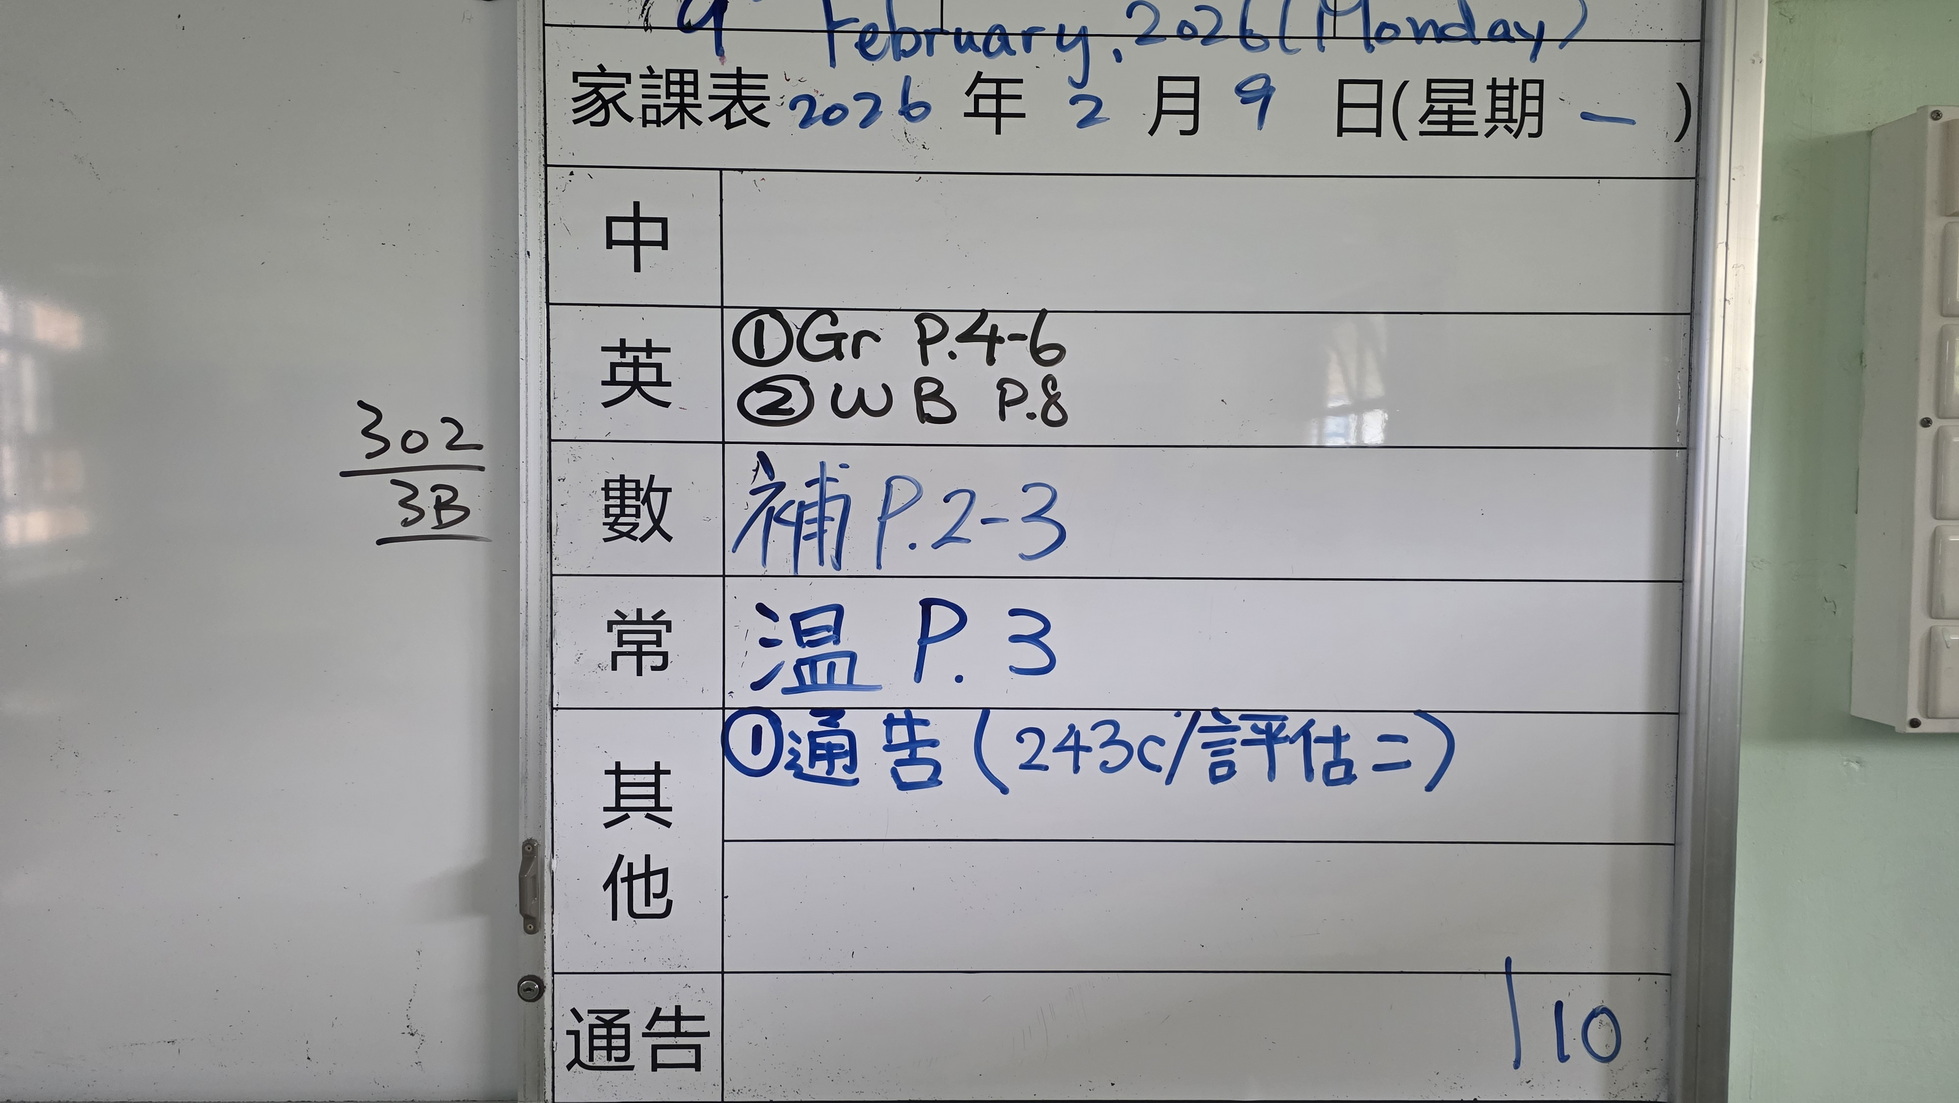 9 February, 2026 (Monday)
家課表 2026 年 2 月 9 日(星期 一 )
中
英 ①Gr P.4-6
②WB P.8
302
3B
數 補 P.2-3
常 温 P.3
其他 ①通告(243c/評估二)
通告 | 10